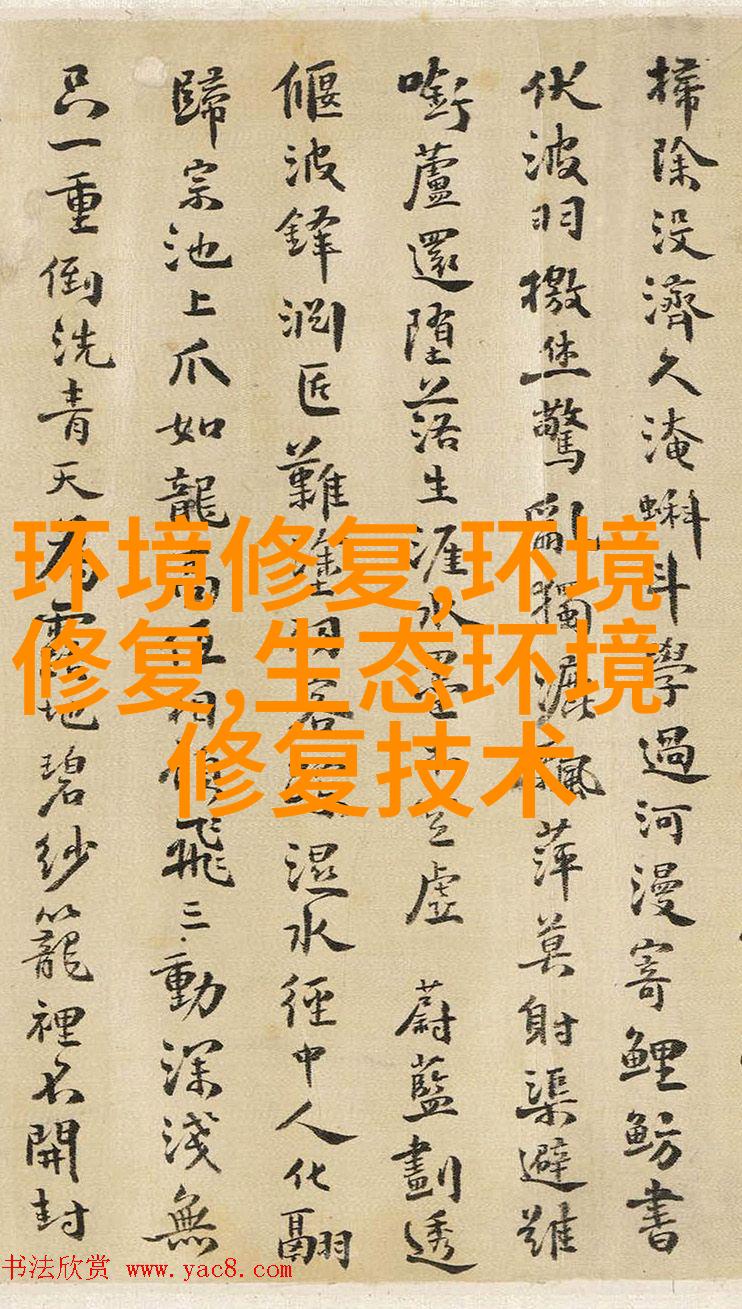 掃除没濟久淹蝌蚪學過河漫寄鯉魴書
伏波羽檄驚亂獨漉飄萍莫射渠避難
啣蘆還墮落生涯水墨虛 蔚藍劃透
偃波鋒匠難塗客濕水徑中人化翮
歸宗池上爪如龍相飛三動深淺無
只一重倒洗青天地碧紗籠裡開封
环境修复,环境
修复,生态环境
修复技术
书法欣赏 www.yac8.com